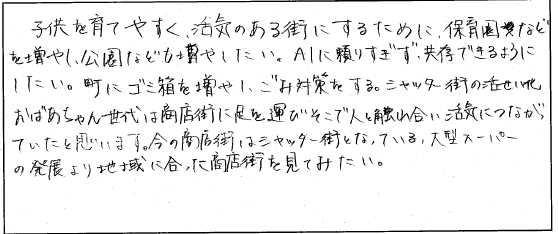 子供を育てやすく、活気のある街にするために、保育園など
を増やし、公園なども増やしたい。AIに頼りすぎず、共存できるように
したい。町にゴミ箱を増やし、ごみ対策をする。シャッター街の活せい化
おばあちゃん世代は商店街に足を運びそこで人と触れ合い活気につながっ
ていたと思います。今の商店街はシャッター街となっている、大型スーパー
の発展より地域に合った商店街を見てみたい。